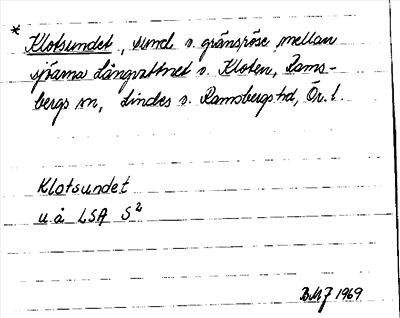 * Klotsundet, sund o. gränsröse mellan
sjöarna Långvattnet o. Kloten, Rams-
bergs sn, Lindes o. Ramsbergs hd, Ör. l.
Klotsundet
u å LSA S²
BMJ 1969